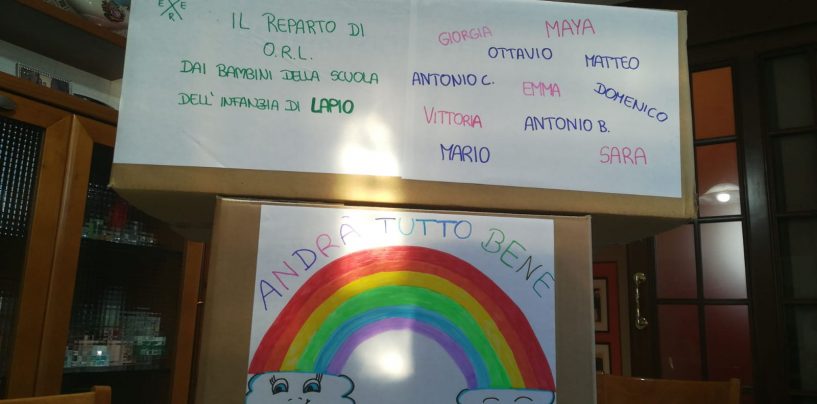 IL REPARTO DI
O.R.L.
DAI BAMBINI DELLA SCUOLA
DELL'INFANZIA DI LAPIO
GIORGIA MAYA
OTTAVIO MATTEO
ANTONIO C. EMMA DOMENICO
VITTORIA ANTONIO B.
MARIO SARA
ANDRÀ TUTTO BENE